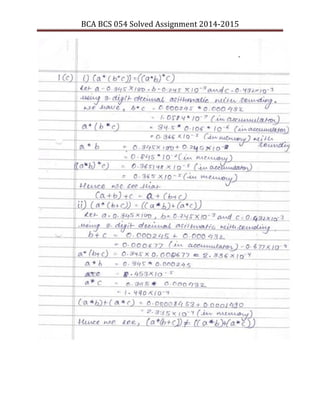 BCA BCS 054 Solved Assignment 2014-2015
1(c) i) (a*(b*c)) = ((a*b)*c)
Let a = 0.345×10⁰ b = 0.245×10⁻³ and c = 0.432×10⁻³
using 3 digit decimal arithmatic with rounding.
we have, b*c = 0.000245 * 0.000432
= 1.0584*10⁻⁷ (in accumulator)
a*(b*c) = 34.5 * 0.106 * 10⁻⁶ (in accumulator)
= 0.366×10⁻⁵ (in memory) with
a*b = 0.345×10⁰+0.245×10⁻³ rounding
= 0.845*10⁻² (in memory)
((a*b)*c) = 0.365148×10⁻⁵ (in accumulator)
= 0.365×10⁻⁵ (in memory)
Hence we see that
(a+b)+c = a+(b+c)
ii) (a*(b+c)) = ((a*b)+(a*c))
Let a = 0.345×10⁰, b = 0.245×10⁻³ and c = 0.432×10⁻³
using 3 digit decimal arithmatic with rounding.
b+c = 0.000245 + 0.000432
= 0.000677 (in accumulator) = 0.677×10⁻³
a*(b+c) = 0.345 × 0.000677 = 2.336×10⁻⁴
a*b = 0.345*0.000245
= 8.453×10⁻⁵
a*c = 0.345* 0.000432
= 1.490×10⁻⁴
(a*b)+(a*c) = 0.00008453+0.0001490
= 2.335×10⁻⁴ (in memory)
Hence we see, (a*(b+c)) ≠ ((a*b)+(a*c))